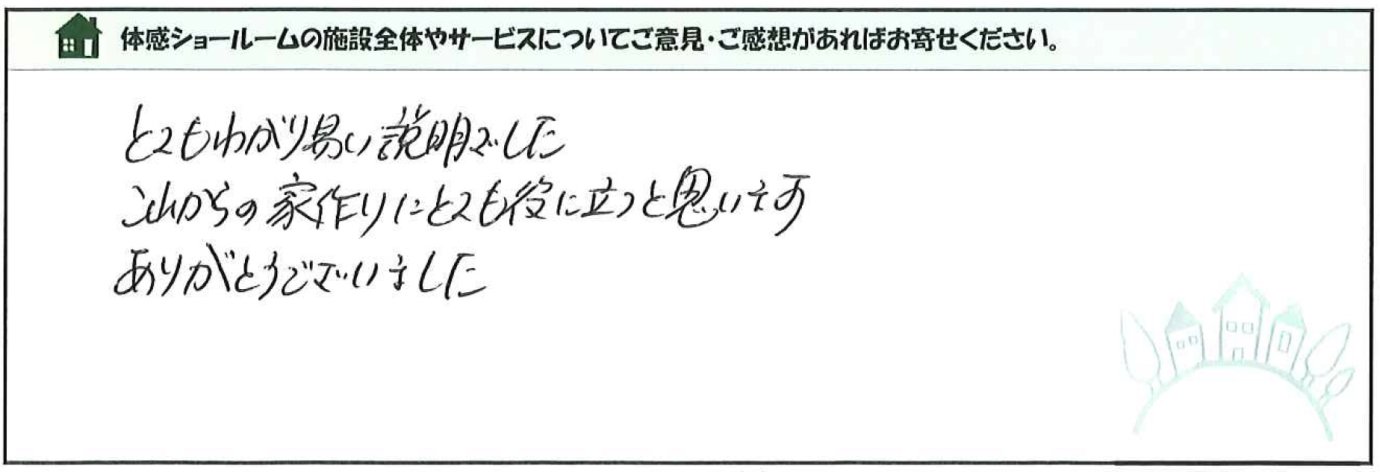 体感ショールームの施設全体やサービスについてご意見・ご感想があればお寄せください。
とてもわかり易い説明でした
これからの家作りにとても役に立つと思います
ありがとうございました